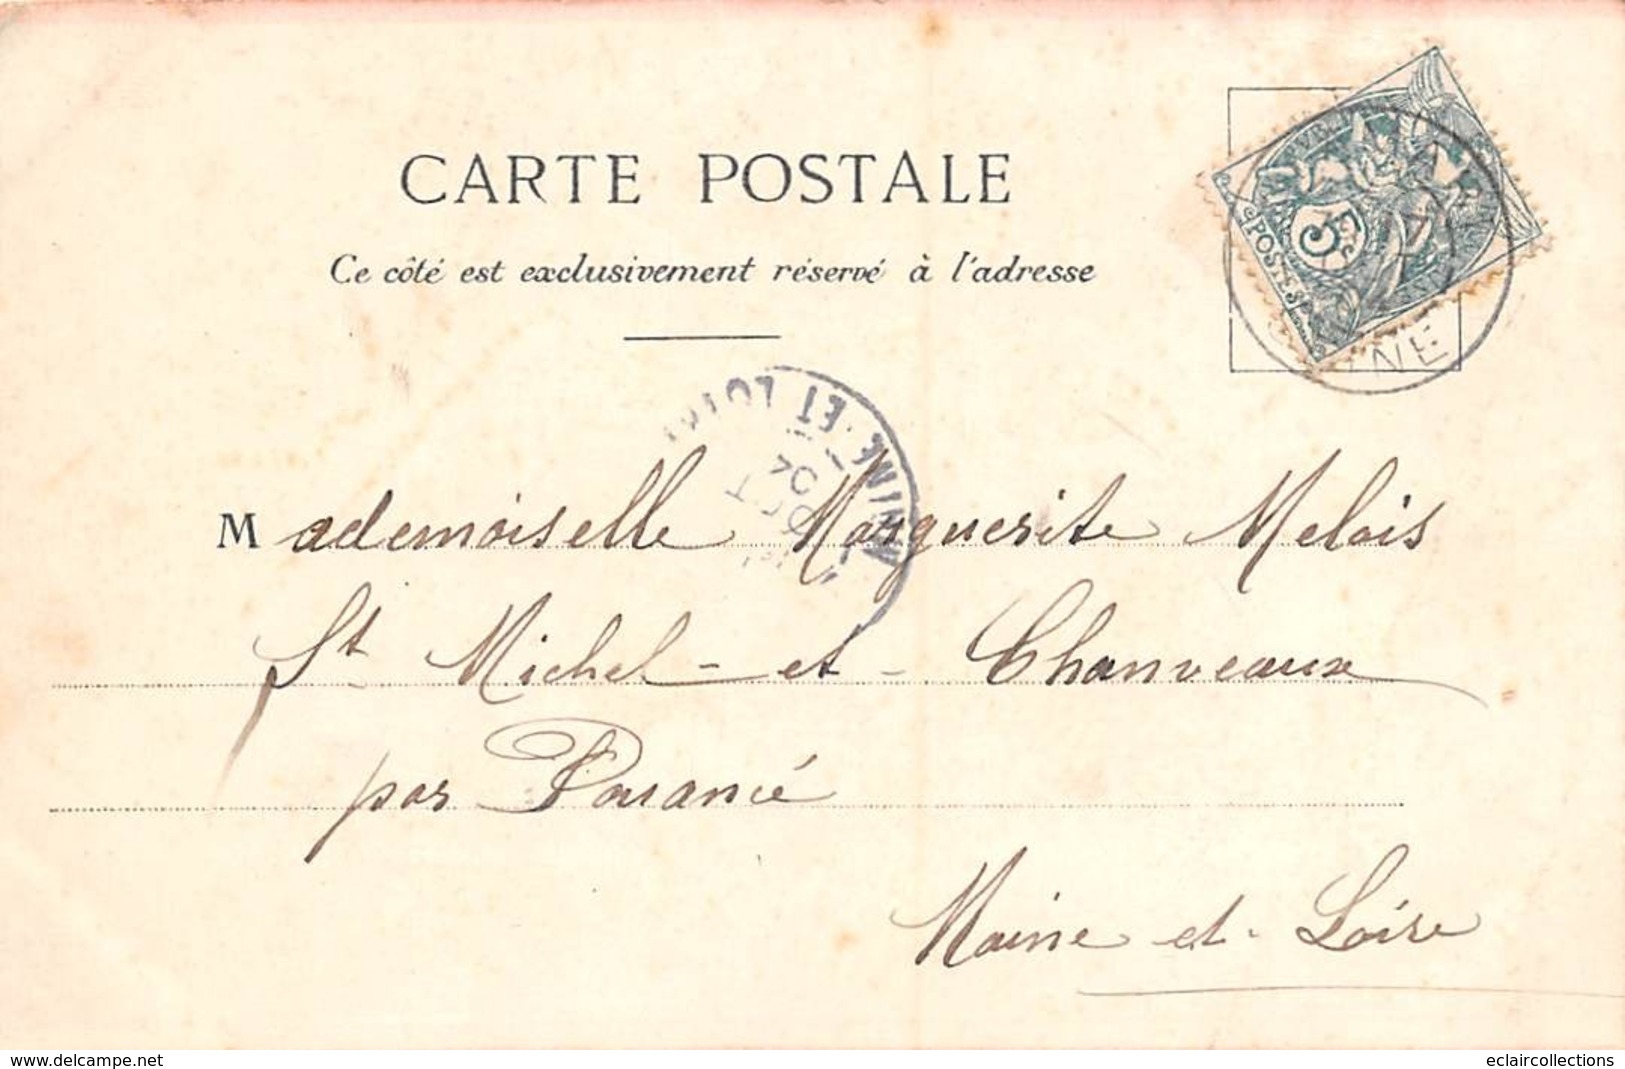 CARTE POSTALE
Ce côté est exclusivement réservé à l'adresse
5
POSTES
NE
MAINE-ET-LOIR
04
Mademoiselle Marguerite Melois
St Michel-et-Chanveaux
par Pouancé
Maine et-Loire
www.delcampe.net
eclaircollections